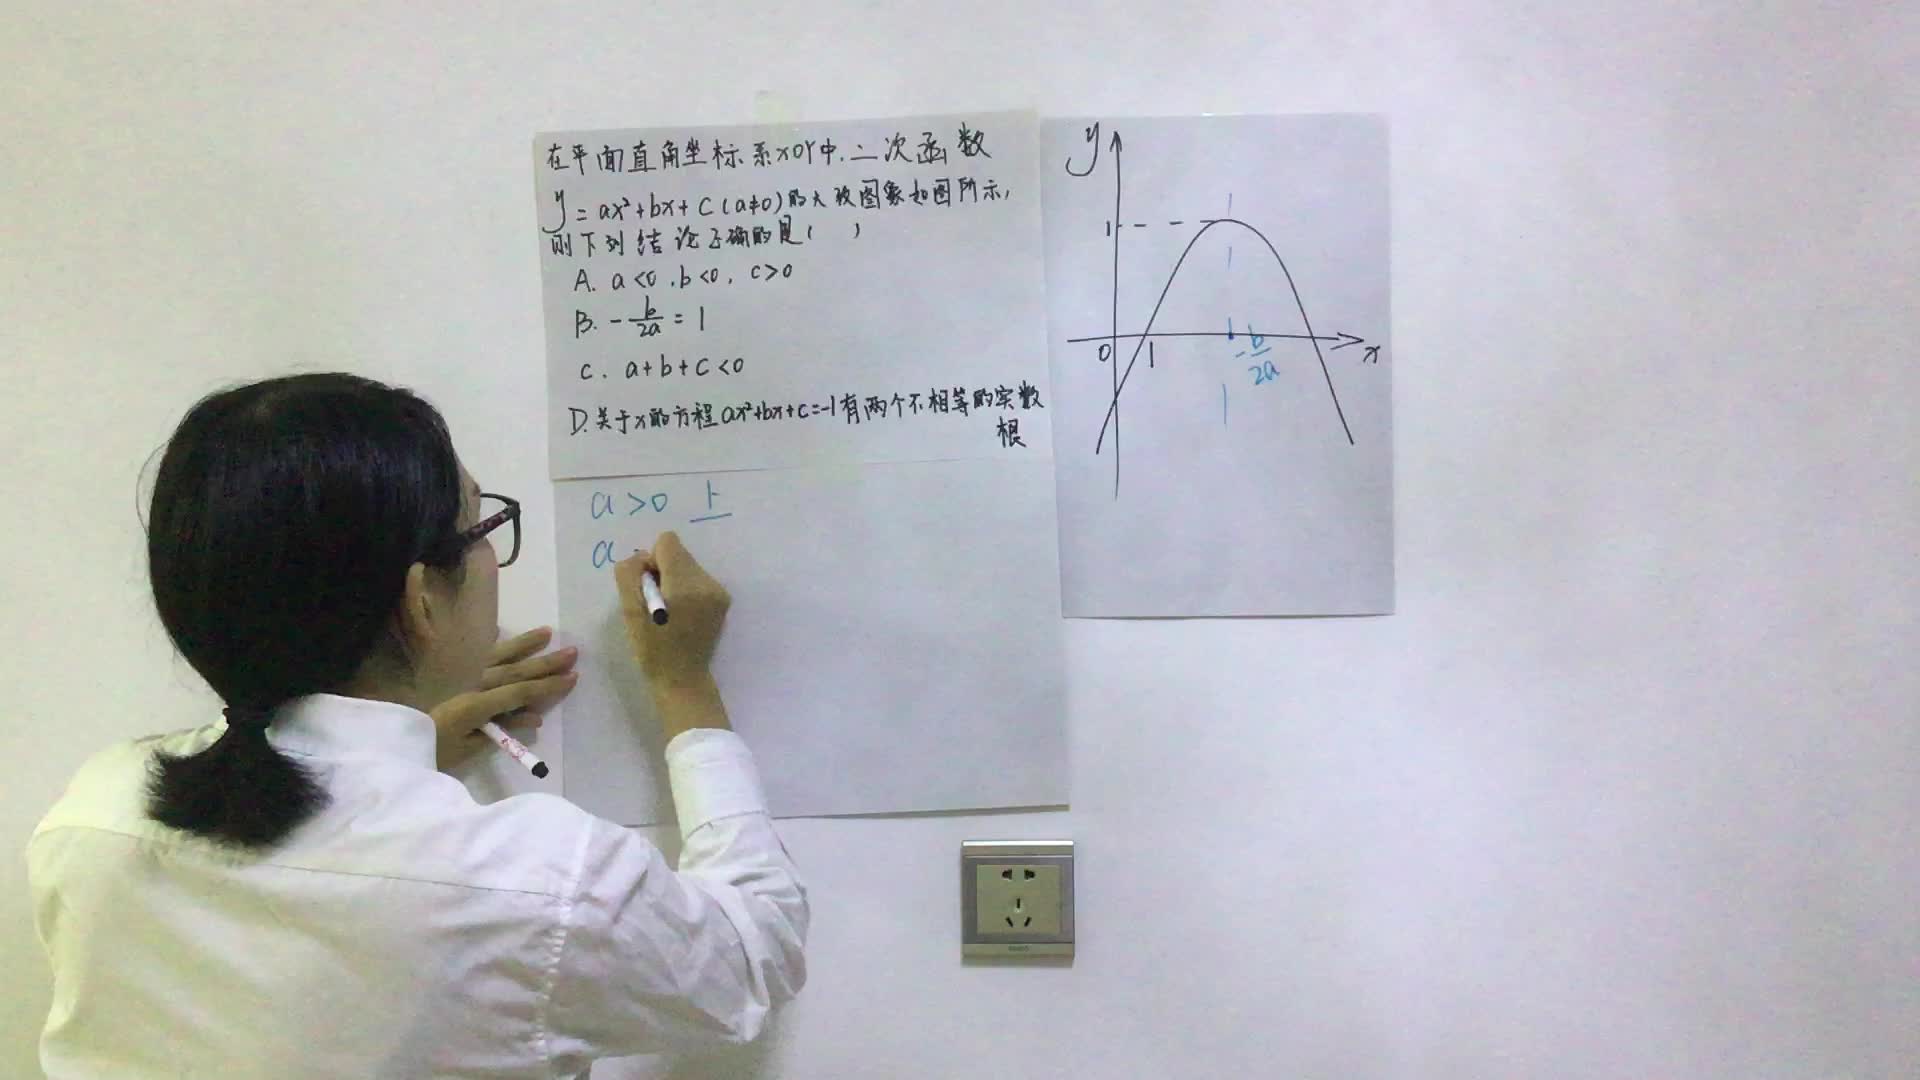 在平面直角坐标系xOy中,二次函数
y=ax²+bx+c(a≠0)的大致图象如图所示,
则下列结论正确的是( )
A. a<0,b<0,c>0
B. -b/2a=1
C. a+b+c<0
D.关于x的方程ax²+bx+c=-1有两个不相等的实数
根
a>0 上
a
y
1
0
1
x
-b/2a